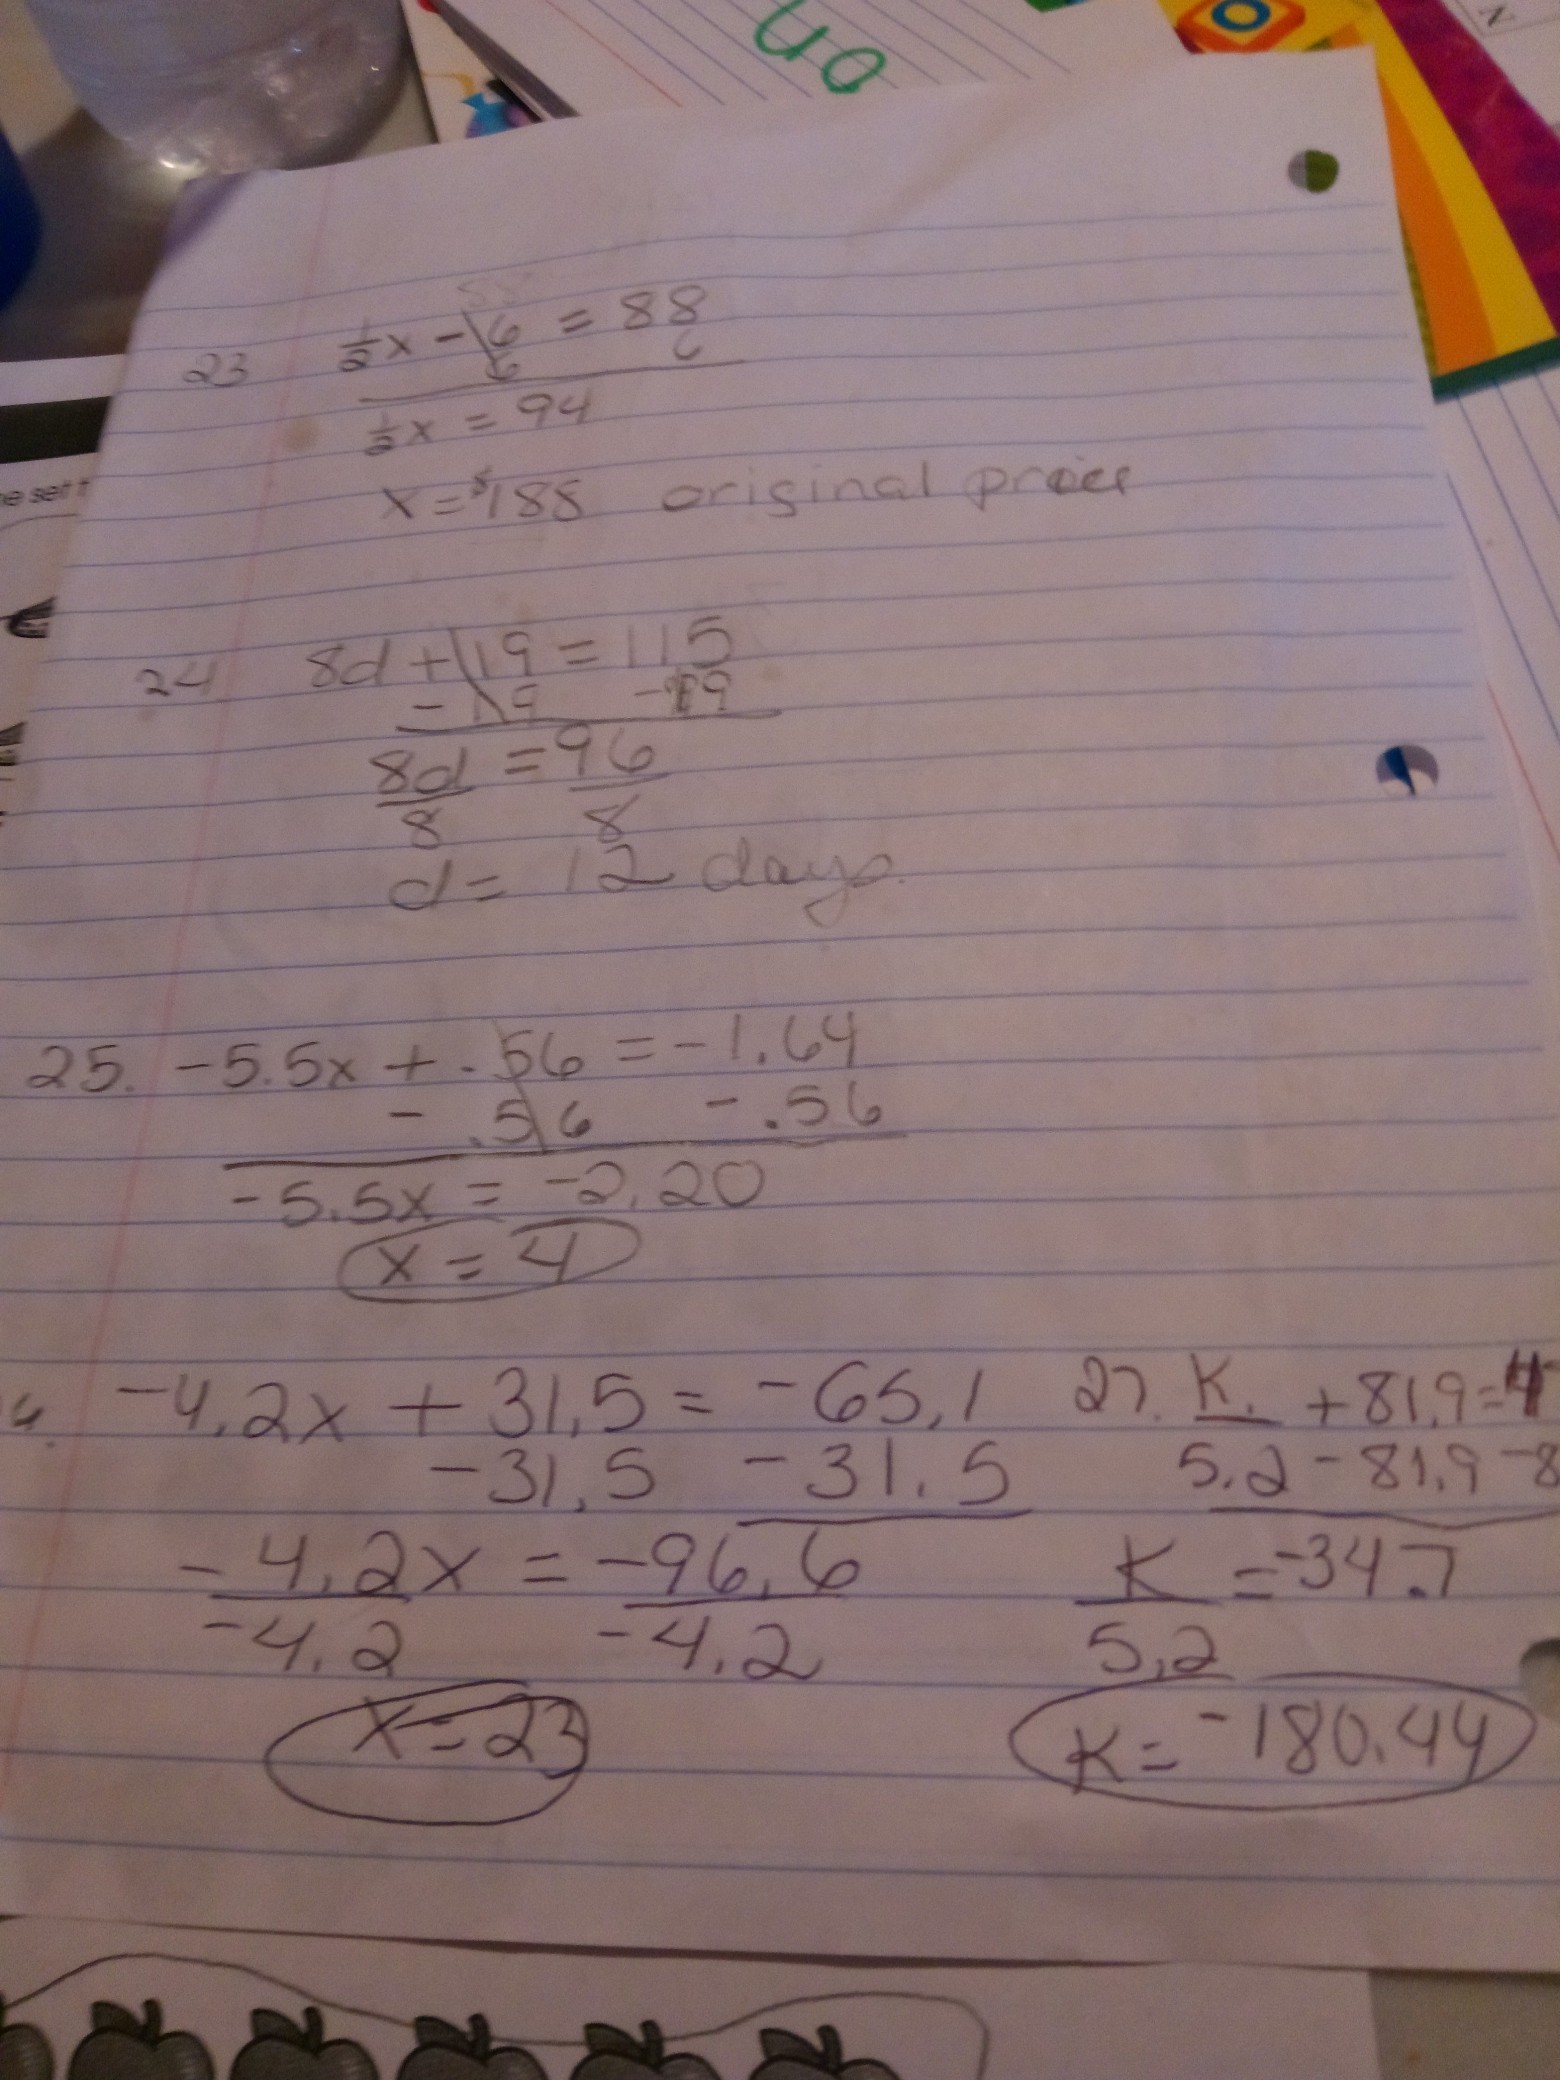 no
N
e set t
23 ½x - 6 = 88
6 6
½x = 94
x = $188 original price
24 8d + 19 = 115
- 19 - 19
8d = 96
8 8
d = 12 days.
25. -5.5x + .56 = -1.64
- .56 - .56
-5.5x = -2.20
x = 4
-4.2x + 31.5 = -65.1
-31.5 -31.5
-4.2x = -96.6
-4.2 -4.2
x = 23
27. K + 81.9 = 4
5.2 - 81.9 -8
K = -34.7
5.2
K = -180.44